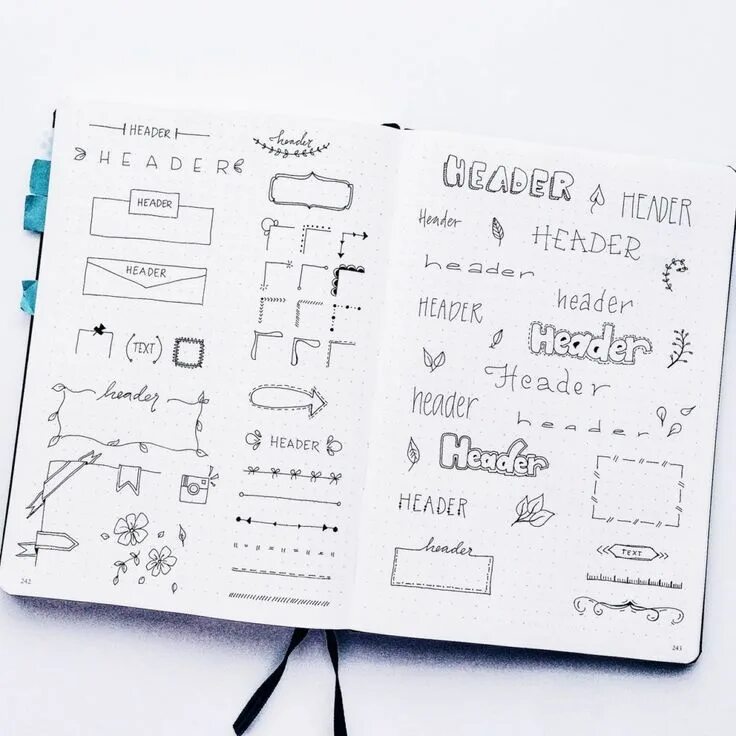 HEADER
HEADER
HEADER
HEADER
(TEXT)
header
242
header
HEADER
HEADER
HEADER
Header
HEADER
header
header
HEADER
Header
Header
header
header
Header
HEADER
header
TEXT
243